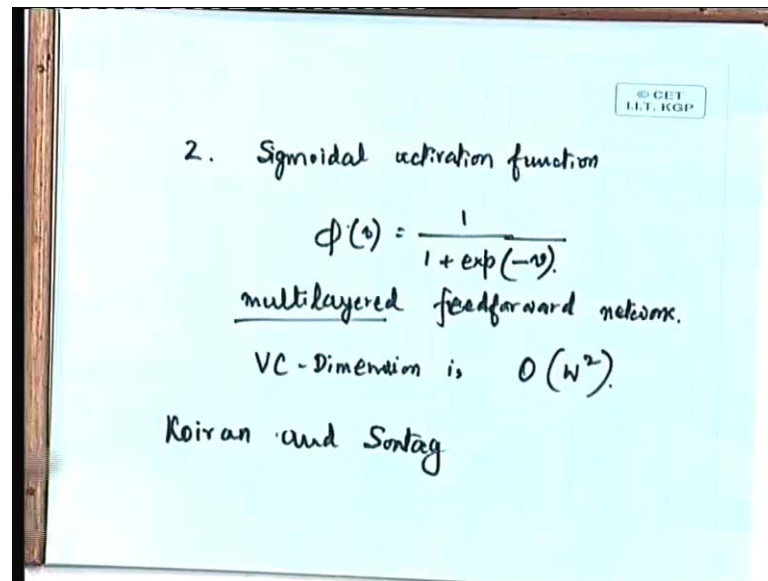 © CET
I.I.T. KGP
2. Sigmoidal activation function
φ(v) = 1 / (1 + exp(-v)).
multilayered feedforward network.
VC-Dimension is O(W²).
Koiran and Sontag